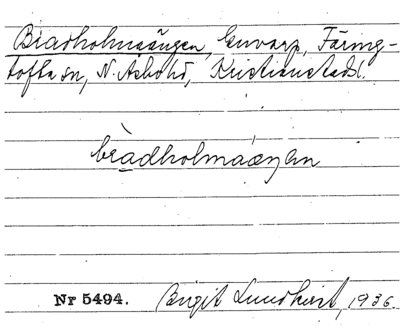 Bradholmaängen, Gunvarp, Färing-
tofta sn, N. Åsbo hd, Kristianstads l.
bràdholmaáŋen
Nr 5494. Birgit Lundkvist, 1936.